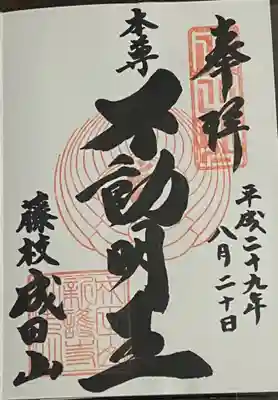 奉拝
平成二十九年
八月二十日
本尊
不動明王
藤枝成田山